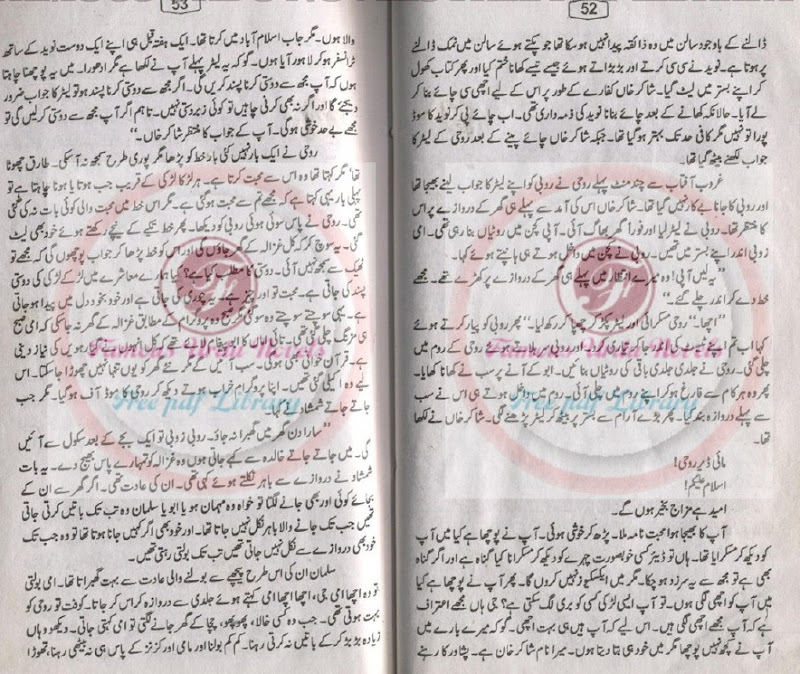 52
ڈالنے کے باوجود سالن میں وہ ذائقہ پیدا نہیں ہو سکا تھا جو پکتے ہوئے سالن میں نمک ڈالنے
پر ہوتا ہے۔ نوید نے سی سی کرتے اور بڑبڑاتے ہوئے جیسے تیسے کھانا ختم کیا اور پھر کتاب کھول
کر اپنے بستر میں لیٹ گیا۔ شاکر خاں کفارے کے طور پر اس کے لیے اچھی سی چائے بنا کر
لے آیا۔ حالانکہ کھانے کے بعد چائے بنانا نوید کی ذمہ داری تھی۔ اب چائے پی کر نوید کا موڈ
پورا تو نہیں مگر کافی حد تک بہتر ہو گیا تھا۔ جبکہ شاکر خاں چائے پینے کے بعد روحی کے لیٹر کا
جواب لکھنے بیٹھ گیا تھا۔
غروب آفتاب سے چند منٹ پہلے روحی نے روبی کو اپنے لیٹر کا جواب لینے بھیجا تھا
اور روبی کا جانا بے کار نہیں گیا تھا۔ شاکر خاں اس کی آمد سے پہلے ہی گھر کے دروازے پر اس
کا منتظر تھا۔ روبی نے لیٹر لیا اور فوراً گھر بھاگ آئی۔ آپی کچن میں روٹیاں بنا رہی تھی۔ امی
زوبی اندر اپنے بستر میں تھیں۔ روبی نے کچن میں داخل ہوتے ہی ہانپتے ہوئے کہا۔
”یہ لیں آپی! وہ میرے انتظار میں پہلے ہی گھر کے دروازے پر کھڑے تھے۔ مجھے
خط دے کر اندر چلے گئے۔“
”اچھا۔“ روحی مسکرائی اور لیٹر پکڑ کر چھپا کر رکھ لیا۔ ”پھر روبی کو پیار کرتے ہوئے
کہا اب تم اپنے ٹیسٹ کی تیاری جا کر
چلی گئی۔ روحی نے جلدی جلدی باقی کی روٹیاں بنائیں۔ ابو کے آنے پر سب نے کھانا کھایا۔
پھر وہ ہر کام سے فارغ ہو کر اپنے روم میں چلی آئی۔ روم میں داخل ہوتے ہی اس نے سب
سے پہلے دروازہ بند کیا۔ پھر بڑے آرام سے بستر پر بیٹھ کر لیٹر پڑھنے لگی۔ شاکر خاں نے لکھا
تھا۔
مائی ڈیر روحی!
اسلام علیکم!
امید ہے مزاج بخیر ہوں گے۔
آپ کا بھیجا ہوا محبت نامہ ملا۔ پڑھ کر خوشی ہوئی۔ آپ نے پوچھا ہے کیا میں آپ
کو دیکھ کر مسکرایا تھا۔ ہاں تو ڈیئر کسی خوبصورت چہرے کو دیکھ کر مسکرانا کیا گناہ ہے اور اگر گناہ
بھی ہے تو مجھ سے یہ سرزد ہو چکا۔ مگر میں ایکسکیوز نہیں کروں گا۔ پھر آپ نے پوچھا ہے کیا
میں آپ کو اچھی لگی ہوں۔ تو آپ ایسی لڑکی کسی کو بری لگ سکتی ہے؟ جی ہاں مجھے اعتراف
ہے کہ آپ مجھے اچھی لگی ہیں۔ اس لیے کہ آپ ہیں ہی بہت اچھی۔ گو کہ میرے بارے میں
آپ نے کچھ نہیں پوچھا مگر میں خود ہی بتا دیتا ہوں۔ میرا نام شاکر خان ہے۔ پشاور کا رہنے
53
والا ہوں۔ مگر جاب اسلام آباد میں کرتا تھا۔ ایک ہفتہ قبل ہی اپنے ایک دوست نوید کے ساتھ
ٹرانسفر ہو کر لاہور آیا ہوں۔ گو کہ یہ لیٹر پہلے آپ نے لکھا ہے مگر ادھورا۔ میں یہ پوچھنا چاہتا
ہوں کہ آپ مجھ سے دوستی کرنا پسند کریں گی۔ اگر مجھ سے دوستی کرنا پسند ہو تو لیٹر کا جواب ضرور
دیجئے گا اور اگر نہ بھی کرنی چاہیں تو کوئی زبردستی نہیں۔ تاہم اگر آپ مجھ سے دوستی کر لیں گی تو
مجھے بے حد خوشی ہو گی۔ آپ کے جواب کا منتظر شاکر خاں۔“
روحی نے ایک بار نہیں کئی بار خط کو پڑھا مگر پوری طرح سمجھ نہ آ سکی۔ طارق چھوٹا
تھا مگر کہتا تھا وہ اس سے محبت کرتا ہے۔ ہر لڑکا لڑکی کے قریب جب ہوتا یا ہونا چاہتا ہے تو
پہلی بار یہی کہتا ہے کہ مجھے تم سے محبت ہو گئی ہے۔ مگر اس خط میں محبت والی کوئی بات نہ کی گئی
تھی۔ روحی نے پاس سوئی ہوئی روبی کو دیکھا۔ پھر خط تکیے کے نیچے رکھتے ہوئے خود بھی لیٹ
گئی۔ یہ سوچ کر کہ کل غزالہ کے گھر جاؤں گی اور اس کو خط پڑھا کر جواب پوچھوں گی کہ مجھے تو
ٹھیک سے سمجھ نہیں آئی۔ دوستی کا مطلب کیا ہے؟ کیا ہمارے معاشرے میں لڑکے لڑکی کی دوستی
پسند کی جاتی ہے۔ محبت تو اور چیز ہے۔ یہ چوری کی جاتی ہے اور خود بخود دل میں پیدا ہو جاتی
ہے۔ یہی سوچتے سوچتے وہ سو گئی مگر صبح وہ پروگرام کے مطابق غزالہ کے گھر نہ جا سکی کہ امی صبح
ہی مزنگ چلی گئی تھی۔
ہے۔ قرآن خوانی بھی ہوئی۔ سب آئیں گے مگر نئے گھر کو یوں تنہا نہیں چھوڑا جا سکتا۔ اس
لیے وہ اکیلی گئی تھیں۔ اپنا پروگرام خراب ہوتے دیکھ کر روحی کا موڈ آف ہو گیا۔ مگر جب
جاتے جاتے شمشاد نے کہا۔
”سارا دن گھر میں گھبرا نہ جاؤ۔ روبی زوبی تو ایک بجے کے بعد سکول سے آئیں
گی۔ میں جاتے جاتے خالدہ سے کہے جاتی ہوں وہ غزالہ کو تمہارے پاس بھیج دے۔ یہ بات
شمشاد نے دروازے سے باہر نکلتے ہوئے کہی تھی۔ ان کی عادت تھی۔ اگر گھر سے ان کے
بجائے کوئی اور بھی جانے لگتا تو خواہ وہ مہمان ہو یا ابو یا سلمان وہ تب تک باتیں کرتی جاتی
تھیں جب تک جانے والا باہر نکل نہیں جاتا تھا۔ اور خود بھی اگر کہیں جانا ہوتا تھا تو وہ جب تک
خود بھی دروازے سے نکل نہیں جاتی تھیں تب تک بولتی رہتی تھیں۔
سلمان ان کی اس طرح پیچھے سے بولنے والی عادت سے بہت گھبراتا تھا۔ امی بولتی
تو وہ اچھا امی جی، اچھا اچھا امی کہتے ہوئے جلدی سے دروازہ کراس کر جاتا۔ کوفت تو روحی کو
بہت ہوتی تھی۔ جب وہ کسی خالہ، پھوپھو، چچا کے گھر جانے لگتی تو امی کہتی جاتی۔ دیکھو وہاں
زیادہ بڑبڑ کر کے باتیں نہ کرتی رہنا۔ کم کم بولنا اور مامی اور کزنز کے پاس ہی نہ بیٹھی رہنا، تھوڑا
Famous Urdu Novels
Free pdf Library
Famous Urdu Novels
Free pdf Library